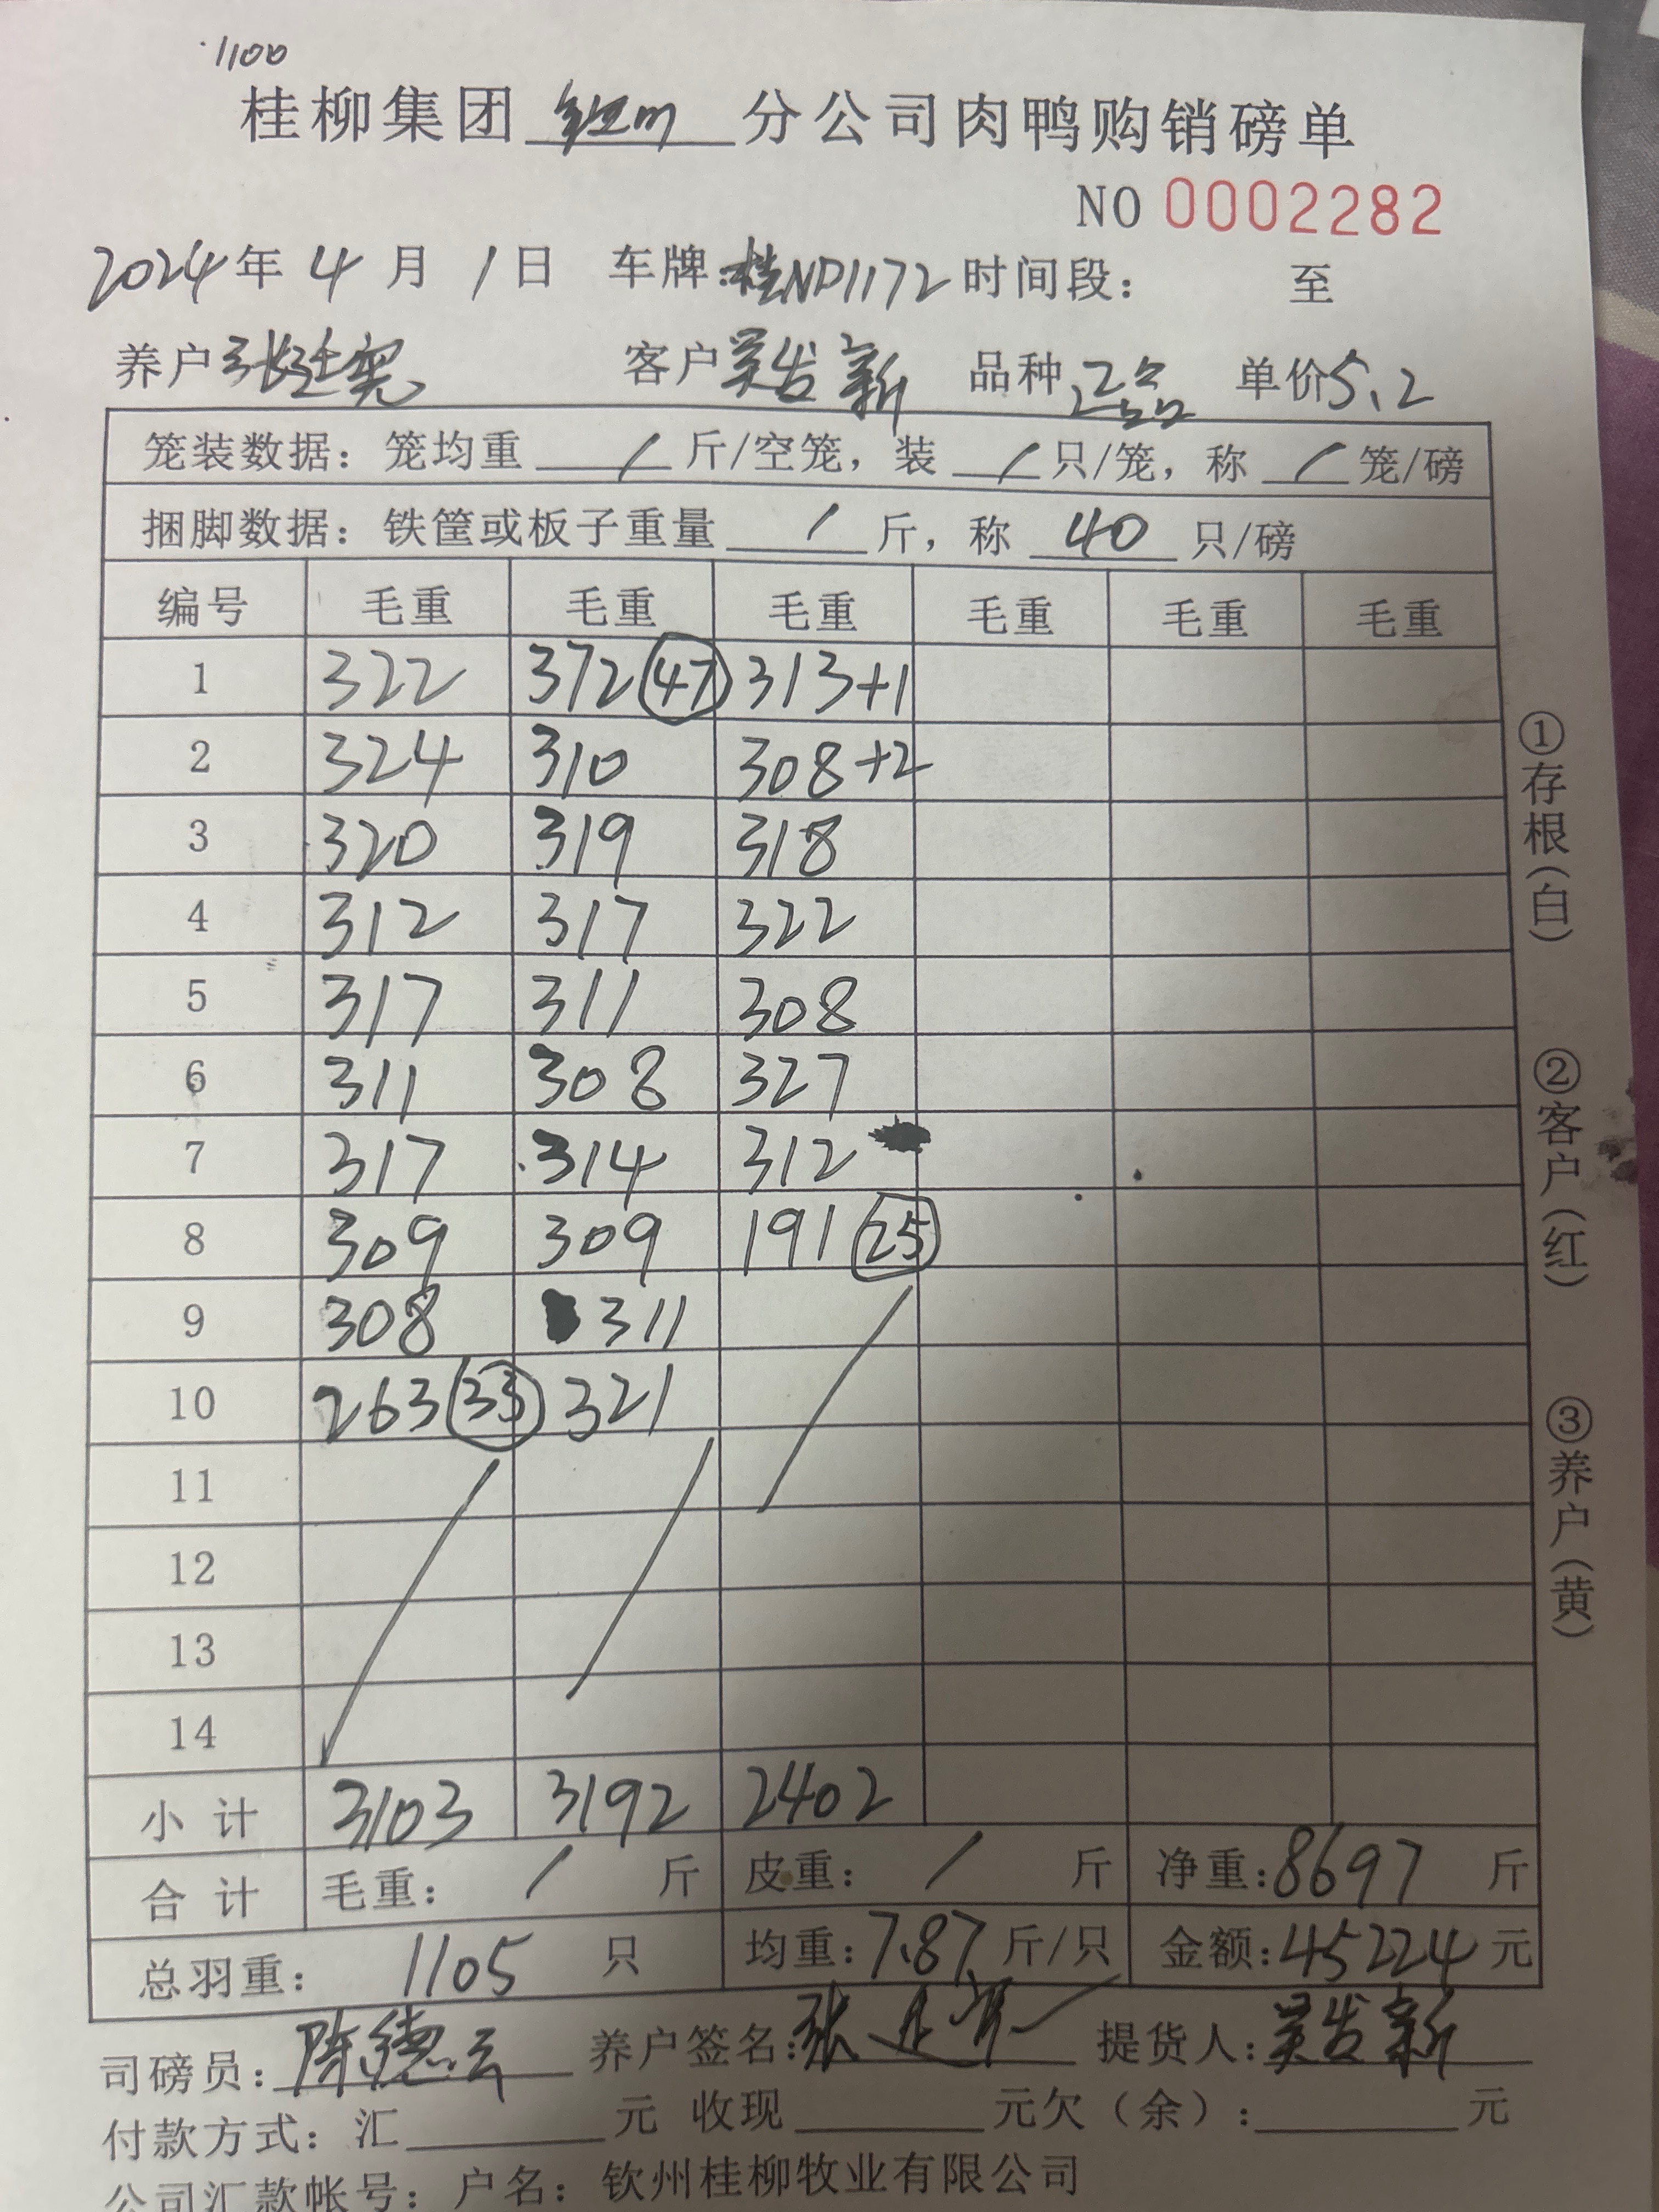 1100
桂柳集团 钦州 分公司肉鸭购销磅单
NO 0002282
2024年 4 月 1 日 车牌:桂ND1172 时间段: 至
养户 张廷宪 客户 吴发新 品种 正品 单价 5.2
笼装数据: 笼均重 / 斤/空笼, 装 / 只/笼, 称 / 笼/磅
捆脚数据: 铁筐或板子重量 / 斤, 称 40 只/磅
编号 毛重 毛重 毛重 毛重 毛重 毛重
1 322 372 47 313+1
2 324 310 308+2
3 320 319 318
4 312 317 322
5 317 311 308
6 311 308 327
7 317 314 312
8 309 309 191 25
9 308 311
10 263 33 321
11
12
13
14
小计 3103 3192 2402
合计 毛重: / 斤 皮重: / 斤 净重:8697 斤
总羽重: 1105 只 均重:7.87 斤/只 金额:45224 元
司磅员: 陈德云 养户签名: 张 提货人: 吴发新
付款方式: 汇 元 收现 元欠(余): 元
公司汇款帐号: 户名: 钦州桂柳牧业有限公司
①存根(白) ②客户(红) ③养户(黄)